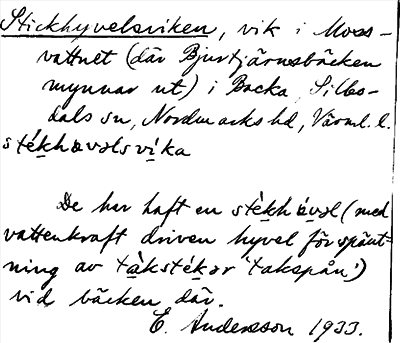 Stickhyvelsviken, vik i Moss-
vattnet (där Bjurtjärnsbäcken
mynnar ut) i Backa, Silbo-
dals sn, Nordmarks hd, Värml. l.
stékhøvəlsvíka
De har haft en stèkhøvəl (med
vattenkraft driven hyvel för spänt-
ning av tàkstékər 'takspån')
vid bäcken där.
E. Andersson 1933.